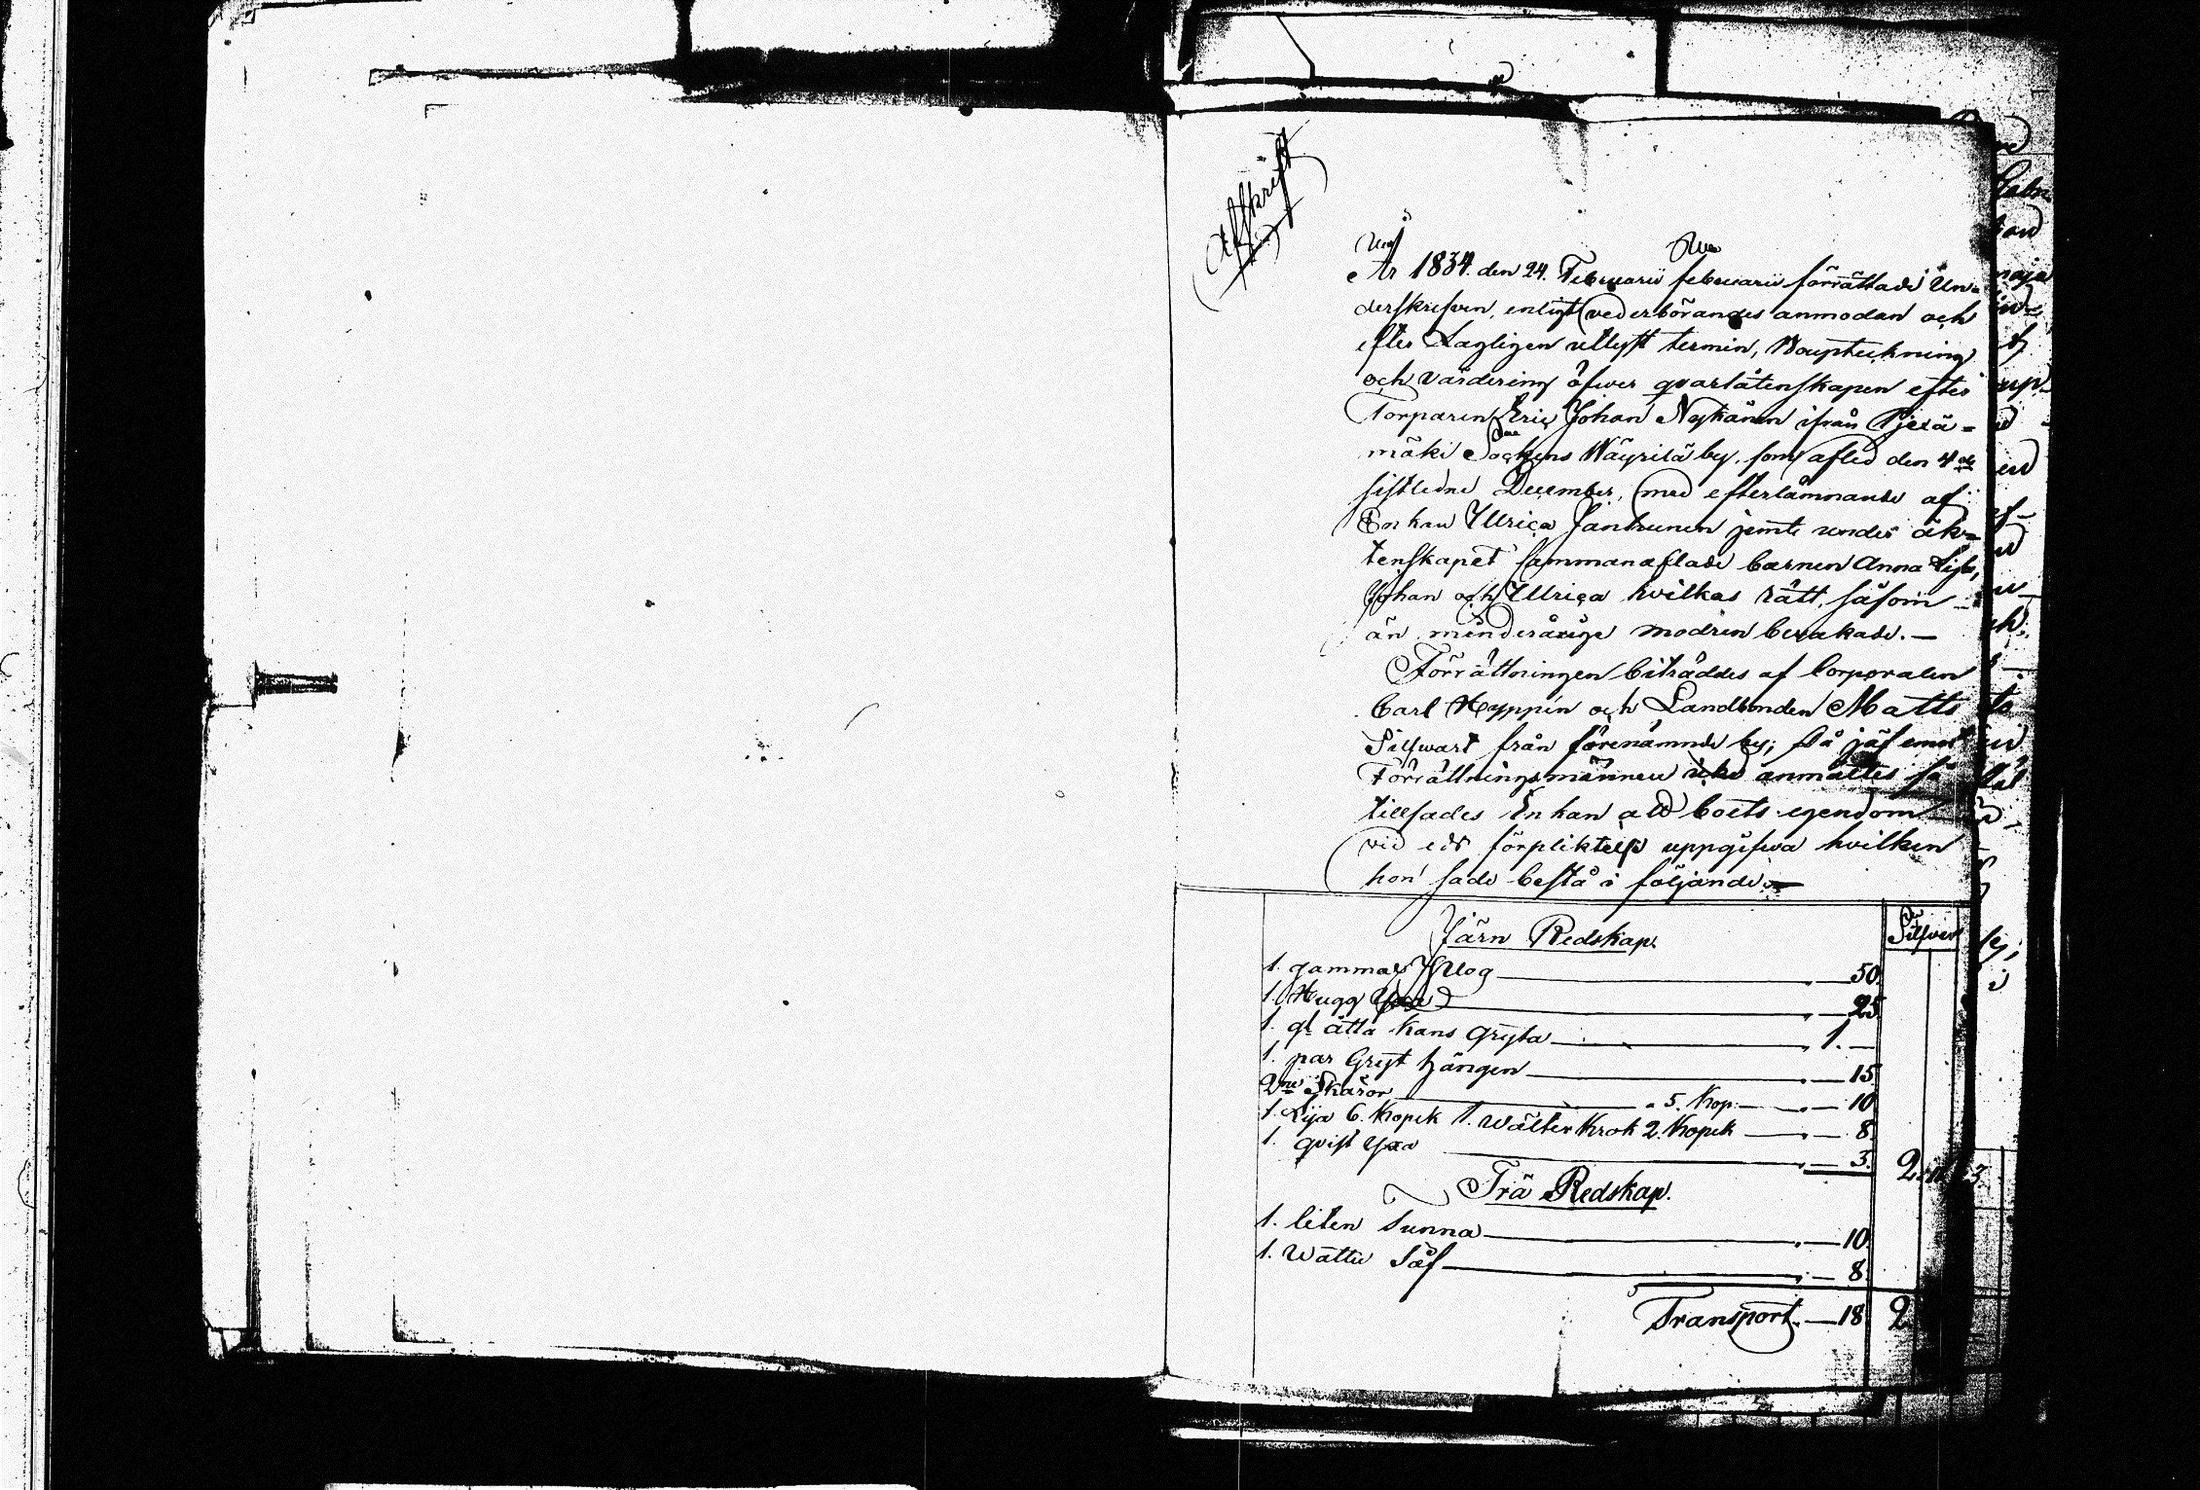 Afskrift
År 1834. den 24. Februarii februarii förrättade Un-
derskrifven, enligt vederbörandes anmodan och
efter Lagligen utlyst termin, Boupteckning
och värdering öfwer qvarlåtenskapen efter
Torparen Eric Johan Nykänen ifrån Pjexä-
mäki Sockens Wäyrilä by, som afled den 4de
sistledne December, med efterlämnande af
Enkan Ullrica Janhunen jemte under äk-
tenskapet sammanaflade barnen Anna Lisa,
Johan och Ullrica hvilkas rätt, såsom
än minderårige modren bevakade. —
Förrättningen biträddes af Corporalen
Carl Hyppén och Landbonden Matts
Silfwast från förenämnde by; Då jäf emot
Förrättningsmännen icke anmältes så
tillsades Enkan att boets egendom
vid eds förpliktelse uppgifwa hvilken
hon sade bestå i följande. —
Järn Redskap. Silfwer
1. gammal Plog — 50.
1. Hugg Yxa — 25
1. gl åtta kans Gryta — 1. —
1. par Gryt hängen — 15
2ne Skäror — 5. Kop. — 10
1. Lija 6. Kopek 1. Wälter Krok 2. Kopek — 8.
1. qvist Yxa — 3. 2
Trä Redskap.
1. liten Tunna — 10
1. Wattu Såf — 8.
Transport. — 18 2